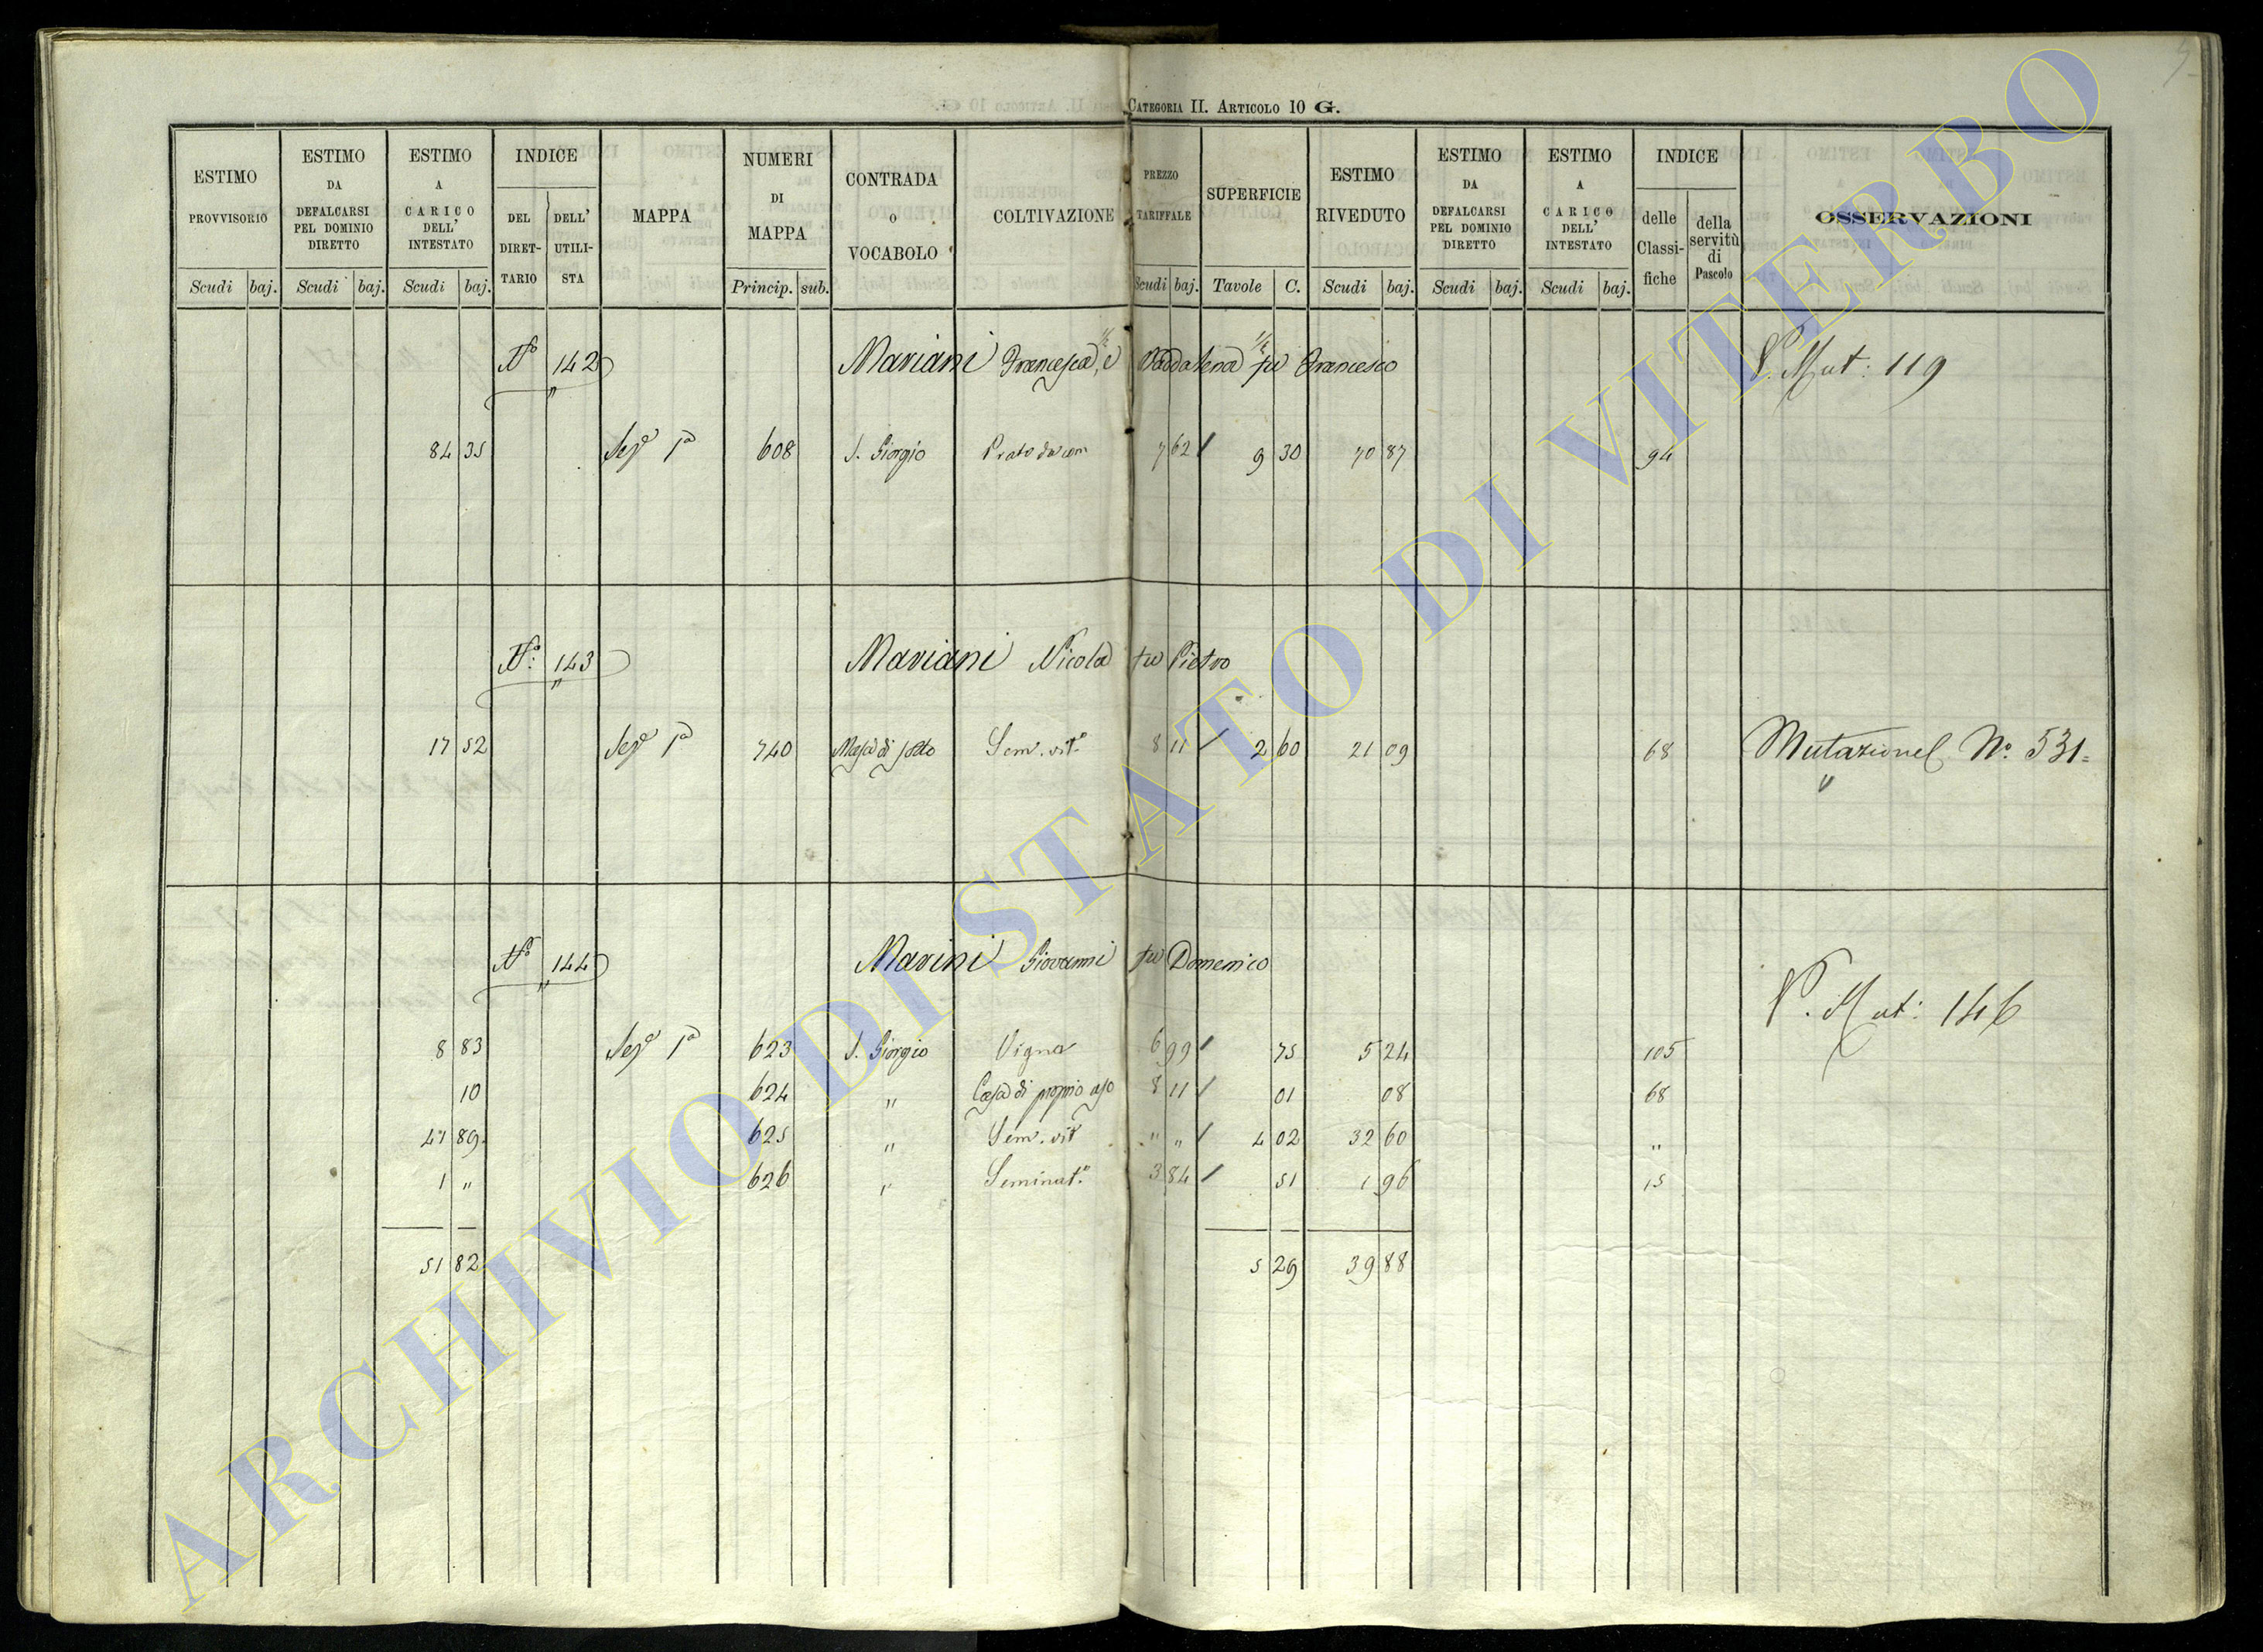 CATEGORIA II. ARTICOLO 10 G.
ESTIMO PROVVISORIO Scudi baj.
ESTIMO DA DEFALCARSI PEL DOMINIO DIRETTO Scudi baj.
ESTIMO A CARICO DELL' INTESTATO Scudi baj.
INDICE DEL DIRET-TARIO DELL' UTILI-STA
MAPPA
NUMERI DI MAPPA Princip. sub.
CONTRADA O VOCABOLO
COLTIVAZIONE
PREZZO TARIFFALE Scudi baj.
SUPERFICIE Tavole C.
ESTIMO RIVEDUTO Scudi baj.
ESTIMO DA DEFALCARSI PEL DOMINIO DIRETTO Scudi baj.
ESTIMO A CARICO DELL' INTESTATO Scudi baj.
INDICE delle Classi-fiche della servitù di Pascolo
OSSERVAZIONI
N° 142 Mariani Francesca 1/2, e Maddalena 1/2 fu Francesco V. Mut: 119
84 35 Sez. 1a 608 S. Giorgio Prato 7 62 / 9 30 70 87 94
N°: 143 Mariani Nicola fu Pietro
17 52 Sez. 1a 740 di sotto Sem. vit.° 8 11 / 2 60 21 09 68 Mutazione N°. 531=
N° 144 Marini Giovanni fu Domenico
V. Mut: 146
8 83 Sez. 1a 623 S. Giorgio Vigna 6 99 / 75 5 24 105
10 624 " Casa di proprio uso 8 11 / 01 08 68
41 89 625 " Sem. vit " " / 4 02 32 60 "
1 " 626 " Seminat.° 3 84 / 51 1 96 15
51 82 5 29 39 88
ARCHIVIO DI STATO DI VITERBO